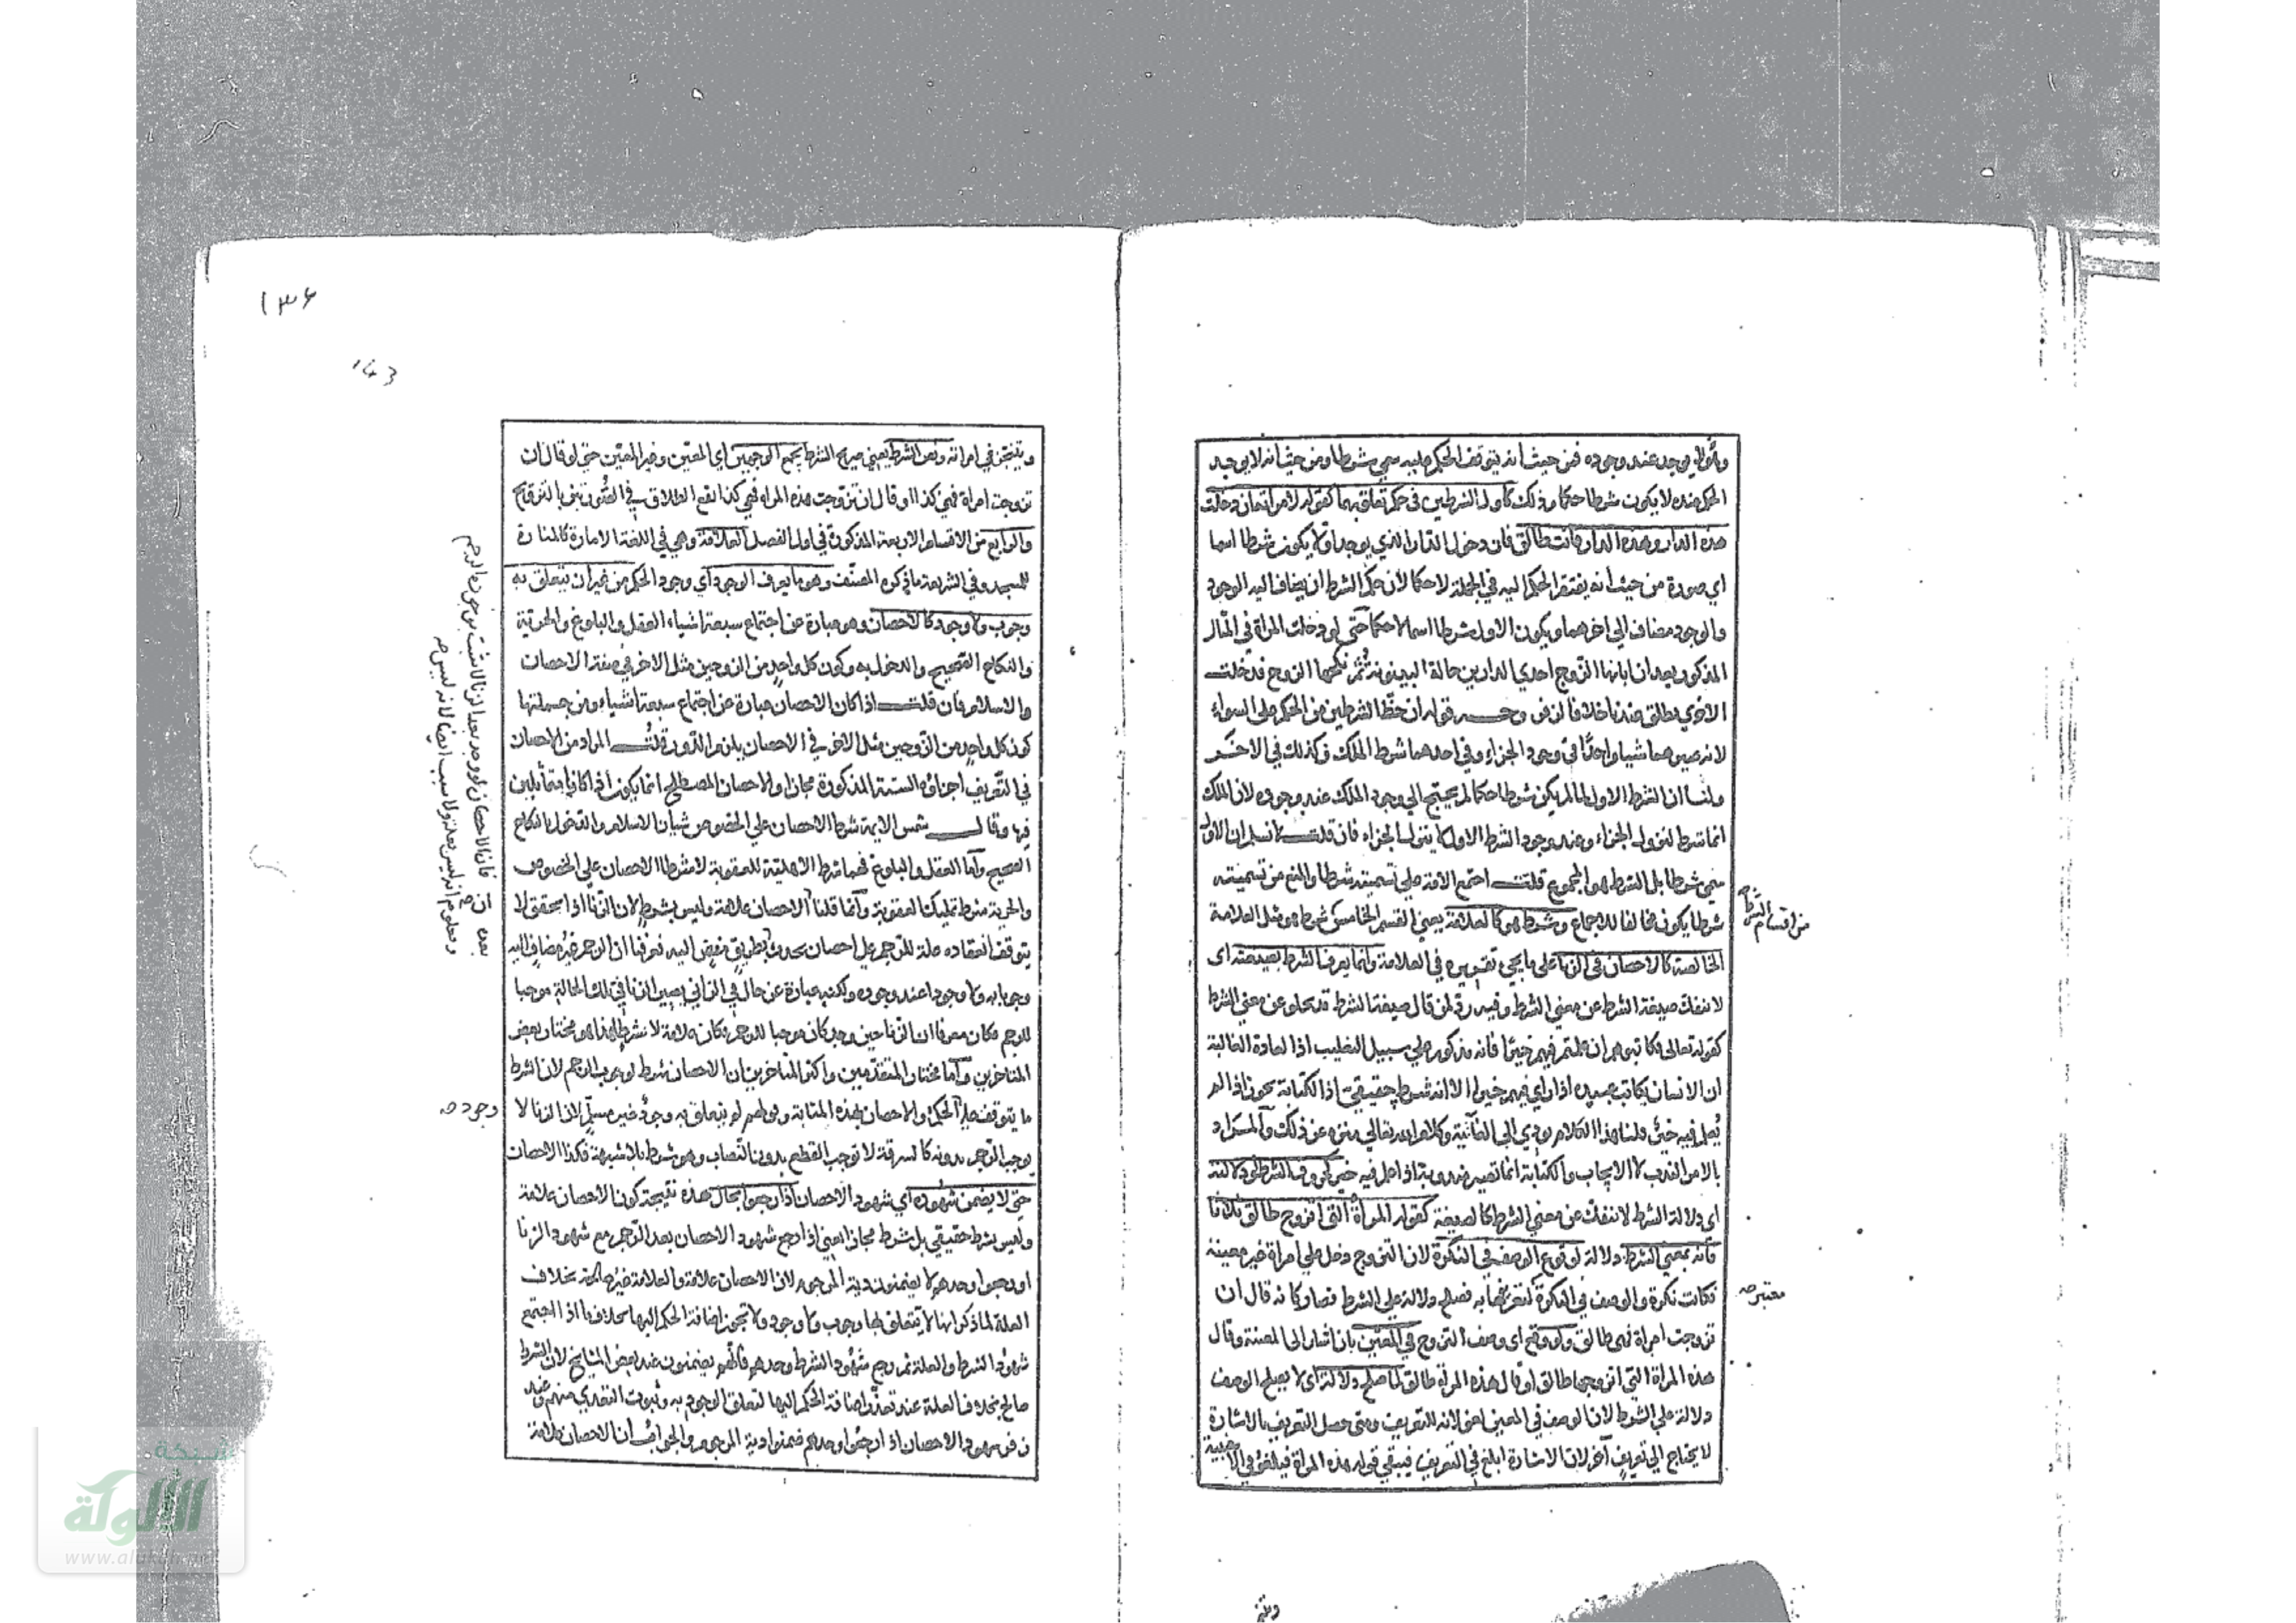 ولم يوجد عند وجوده فمن حيث انه يتوقف الحكم عليه سمي شرطا ومن حيث انه لا يوجد
الحكم عنده لا يكون شرطا حكما وذلك كاول الشرطين في حكم تعلق بهما كقوله لامراته ان دخلت
هذه الدار وهذه الدار فانت طالق فان دخول الدار الذي يوجد اولا يكون شرطا اسما
اي صورة من حيث انه يفتقر الحكم اليه في الجملة لا حكما لان حكم الشرط ان يضاف اليه الوجود
والوجود مضاف الي اخرهما ويكون الاول شرطا اسما لا حكما حتي لو دخلت المراة في المثال
المذكور بعد ان ابانها الزوج احدي الدارين حالة البينونة ثم نكحها الزوج فدخلت
الاخري يطلق عندنا خلافا لزفر وجه قوله ان حظ الشرطين من الحكم علي السواء
لانه صيرهما شيا واحدا في وجود الجزاء وفي احدهما شرط الملك فكذلك في الاخر
ولنا ان الشرط الاول لما لم يكن شرطا حكما لم يحتج الي وجود الملك عند وجوده لان الملك
انما شرط لنزول الجزاء وعند وجود الشرط الاول لا ينزل الجزاء فان قلت لا نسلم ان الاول
سمي شرطا بل الشرط هو المجموع قلت اجتمع الامة علي تسميته شرطا والمنع من تسميته
شرطا يكون مخالفا للاجماع وشرط هو كالعلامة يعني القسم الخامس شرط هو مثل العلامة
من اقسام الشرط صح
الخالصة كالاحصان في الزنا علي ما يجيء تقريره في العلامة وانما يعرف الشرط بصيغته اي
لا تنفك صيغة الشرط عن معني الشرط وفيه رد لمن قال صيغة الشرط قد تخلو عن معني الشرط
كقوله تعالي فكاتبوهم ان علمتم فيهم خيرا فانه مذكور علي سبيل التغليب اذ العادة الغالبة
ان الانسان يكاتب عبيده اذا راي فيهم خيرا لا انه شرط حقيقي اذ الكتابة تجوز اذا لم
يعلم فيه خير قلنا هذا الكلام يودي الي الغائية وكلام الله تعالي منزه عن ذلك والمراد
بالامر الندب لا الايجاب والكتابة انما تصير مندوبة اذا علم فيه خير او دلالته
اي دلالة الشرط لا تنفك عن معني الشرط كالصيغة كقوله المراة التي اتزوج طالق ثلاثا
فانه بمعني الشرط دلالة لوقوع الوصف في النكرة لان التزوج دخل علي امراة غير معينة
فكانت نكرة والوصف في النكرة لتعرفها به فصلح دلالة علي الشرط فصار كانه قال ان
معتبر صح
تزوجت امراة فهي طالق ولو وقع اي وصف التزوج في المعين بان اشار الي المعينة وقال
هذه المراة التي اتزوجها طالق او قال هذه المراة طالق لما صلح دلالة اي لا يصلح الوصف
دلالة علي الشرط لان الوصف في المعين لغو لانه للتعريف ومتي حصل التعريف بالاشارة
لا يحتاج الي تعريف آخر لان الاشارة ابلغ في التعريف فيبقي قوله هذه المراة فيلغو في الاجنبية
١٣٦
143
ويتنجز في امراته ونص الشرط يعني صريح الشرط يجمع الوجهين اي المعين وغير المعين حتي لو قال ان
تزوجت امراة فهي كذا او قال ان تزوجت هذه المراة فهي كذا يقع الطلاق في الصورتين بالتزوج
والرابع من الاقسام الاربعة المذكورة في اول الفصل العلامة وهي في اللغة الامارة كالمنارة
للمسجد وفي الشريعة ما ذكره المصنف وهو ما يعرف الوجود اي وجود الحكم من غير ان يتعلق به
وجوب ولا وجود كالاحصان وهو عبارة عن اجتماع سبعة اشياء العقل والبلوغ والحرية
والنكاح الصحيح والدخول به وكون كل واحد من الزوجين مثل الاخر في صفة الاحصان
والاسلام فان قلت اذا كان الاحصان عبارة عن اجتماع سبعة اشياء ومن جملتها
كون كل واحد من الزوجين مثل الاخر في الاحصان يلزم الدور قلت المراد من الاحصان
في التعريف اجزاؤه الستة المذكورة مجازا والاحصان المصطلح انما يكون اذا كانا متماثلين
فيها وقال شمس الايمة شرط الاحصان علي الخصوص شيان الاسلام والدخول بالنكاح
الصحيح واما العقل والبلوغ فهما شرط الاهلية للعقوبة لا شرطا الاحصان علي الخصوص
والحرية شرط تكميل العقوبة وانما قلنا الاحصان علامة وليس بشرط لان الزنا اذا تحقق لا
يتوقف انعقاده علة للرجم علي احصان يحدث بعده
فان الاحصان لو وجد بعد الزنا لا يثبت بوجوده الرجم
ومعلوم انه ليس بعلة ولا سبب ايضا لانه ليس
بطريق مفض اليه فعرفنا ان الرجم غير مضاف اليه
وجوبا به ولا وجودا عند وجوده ولكنه عبارة عن حال في الزاني يصير الزنا في تلك الحالة موجبا
للرجم فكان معرفا ان الزنا حين وجد كان موجبا للرجم فكان علامة لا شرطا هذا هو مختار بعض
المتاخرين واما مختار المتقدمين واكثر المتاخرين ان الاحصان شرط لوجوب الرجم لان الشرط
ما يتوقف عليه الحكم والاحصان بهذه المثابة وقولهم لم يتعلق به وجود غير مسلم لان الزنا لا
وجوده صح
يوجب الرجم بدونه كالسرقة لا توجب القطع بدون النصاب وهو شرط بلا شبهة فكذا الاحصان
حتي لا يضمن شهوده اي شهود الاحصان اذا رجعوا بحال هذه نتيجة كون الاحصان علامة
وليس بشرط حقيقي بل شرط مجازا يعني اذا رجع شهود الاحصان بعد الرجم مع شهود الزنا
او رجعوا وحدهم لا يضمنون دية المرجوم لان الاحصان علامة والعلامة غير صالحة بخلاف
العلة لما ذكرنا انها لا يتعلق بها وجوب ولا وجود ولا تجوز اضافة الحكم اليها بخلاف ما اذا اجتمع
شهود الشرط والعلة ثم رجع شهود الشرط وحدهم فانهم يضمنون عند بعض المشايخ لان الشرط
صالح لخلافة العلة عند تعذر اضافة الحكم اليها لتعلق الوجود به وثبوت التعدي منهم وعند
زفر شهود الاحصان اذا رجعوا وحدهم ضمنوا دية المرجوم والجواب ان الاحصان علامة
شبكة
الألوكة
www.alukah.net